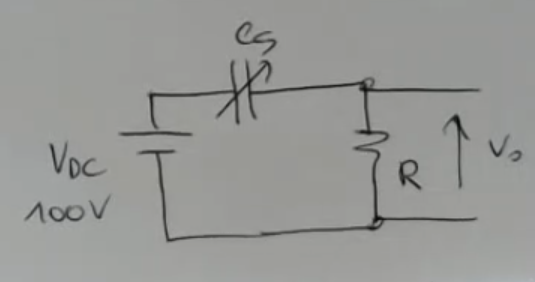 Cs
VDC
100V
R
Vo